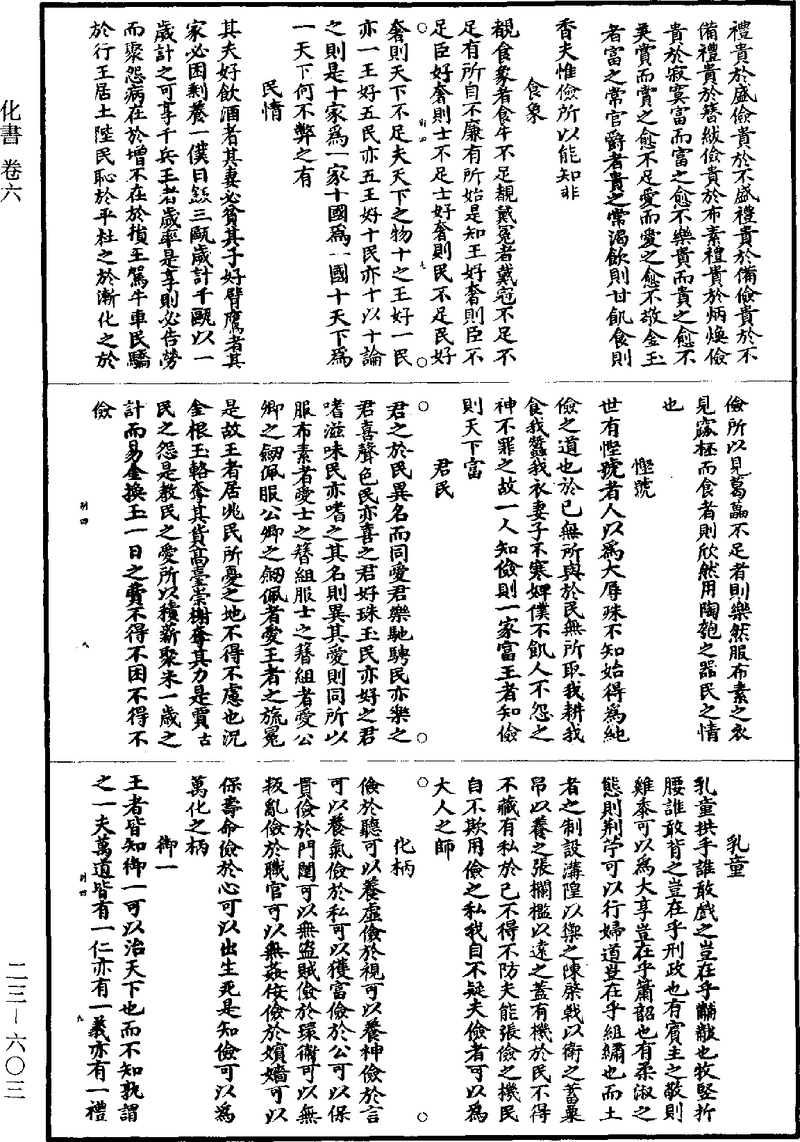 化書 卷六
禮貴於盛儉貴於不盛禮貴於備儉貴於不
備禮貴於簪紱儉貴於布素禮貴於炳煥儉
貴於寂寞富而富之愈不樂貴而貴之愈不
美賞而賞之愈不足愛而愛之愈不敬金玉
者富之常官爵者貴之常渴飲則甘飢食則
香夫惟儉所以能知非
食象
觀食象者食牛不足觀戴冕者戴冠不足不
足有所自不廉有所始是知王好奢則臣不
足臣好奢則士不足士好奢則民不足民好
奢則天下不足夫天下之物十之王好一民
亦一王好五民亦五王好十民亦十以十論
之則是十家爲一家十國爲一國十天下爲
一天下何不弊之有
民情
其夫好飲酒者其妻必貧其子好臂鷹者其
家必困剩養一僕日飯三甌歲計千甌以一
歲計之可享千兵王者歲率是享則必告勞
而聚怨病在於增不在於損王駕牛車民驕
於行王居土陛民恥於平杜之於漸化之於
儉所以見葛藟不足者則樂然服布素之衣
見窳杯而食者則欣然用陶匏之器民之情
也
慳號
世有慳號者人以爲大辱殊不知始得爲純
儉之道也於己無所與於民無所取我耕我
食我蠶我衣妻子不寒婢僕不飢人不怨之
神不罪之故一人知儉則一家富王者知儉
則天下富
君民
君之於民異名而同愛君樂馳騁民亦樂之
君喜聲色民亦喜之君好珠玉民亦好之君
嗜滋味民亦嗜之其名則異其愛則同所以
服布素者愛士之簪組服士之簪組者愛公
卿之劒佩服公卿之劒佩者愛王者之旒冕
是故王者居兆民所憂之地不得不慮也況
金根玉輅奪其貨高臺崇榭奪其力是賈古
民之怨是教民之愛所以積薪聚米一歲之
計而易金換玉一日之費不得不困不得不
儉
乳童
乳童拱手誰敢戲之豈在乎黼黻也牧竪折
腰誰敢背之豈在乎刑政也有賓主之敬則
雞黍可以爲大享豈在乎簫韶也有柔淑之
態則荆苧可以行婦道豈在乎組繡也而土
者之制設溝隍以禦之陳棨戟以衛之蓄粟
帛以養之張欄檻以遠之蓋有機於民不得
不藏有私於己不得不防夫能張儉之機民
自不欺用儉之私我自不疑夫儉者可以爲
大人之師
化柄
儉於聽可以養虛儉於視可以養神儉於言
可以養氣儉於私可以獲富儉於公可以保
貴儉於門闥可以無盜賊儉於環衛可以無
叛亂儉於職官可以無姦佞儉於嬪嬙可以
保壽命儉於心可以出生死是知儉可以爲
萬化之柄
御一
王者皆知御一可以治天下也而不知孰謂
之一夫萬道皆有一仁亦有一義亦有一禮
二三－六〇三